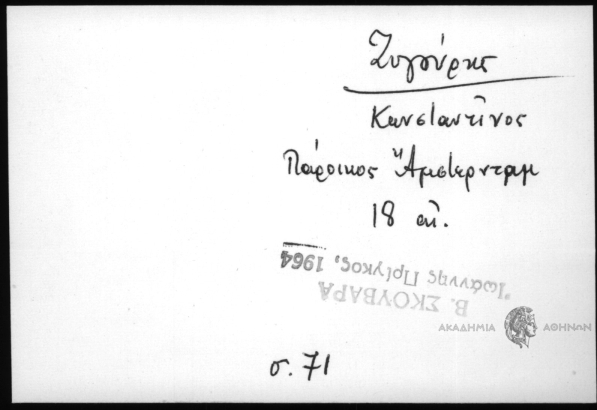 Ζυγούρης
Κωνσταντῖνος
Πάροικος Ἄμστερνταμ
18 αἰ.
Β. ΣΚΟΥΒΑΡΑ
Ἰωάννης Πρίγκος, 1964
ΑΚΑΔΗΜΙΑ ΑΘΗΝΩΝ
σ. 71